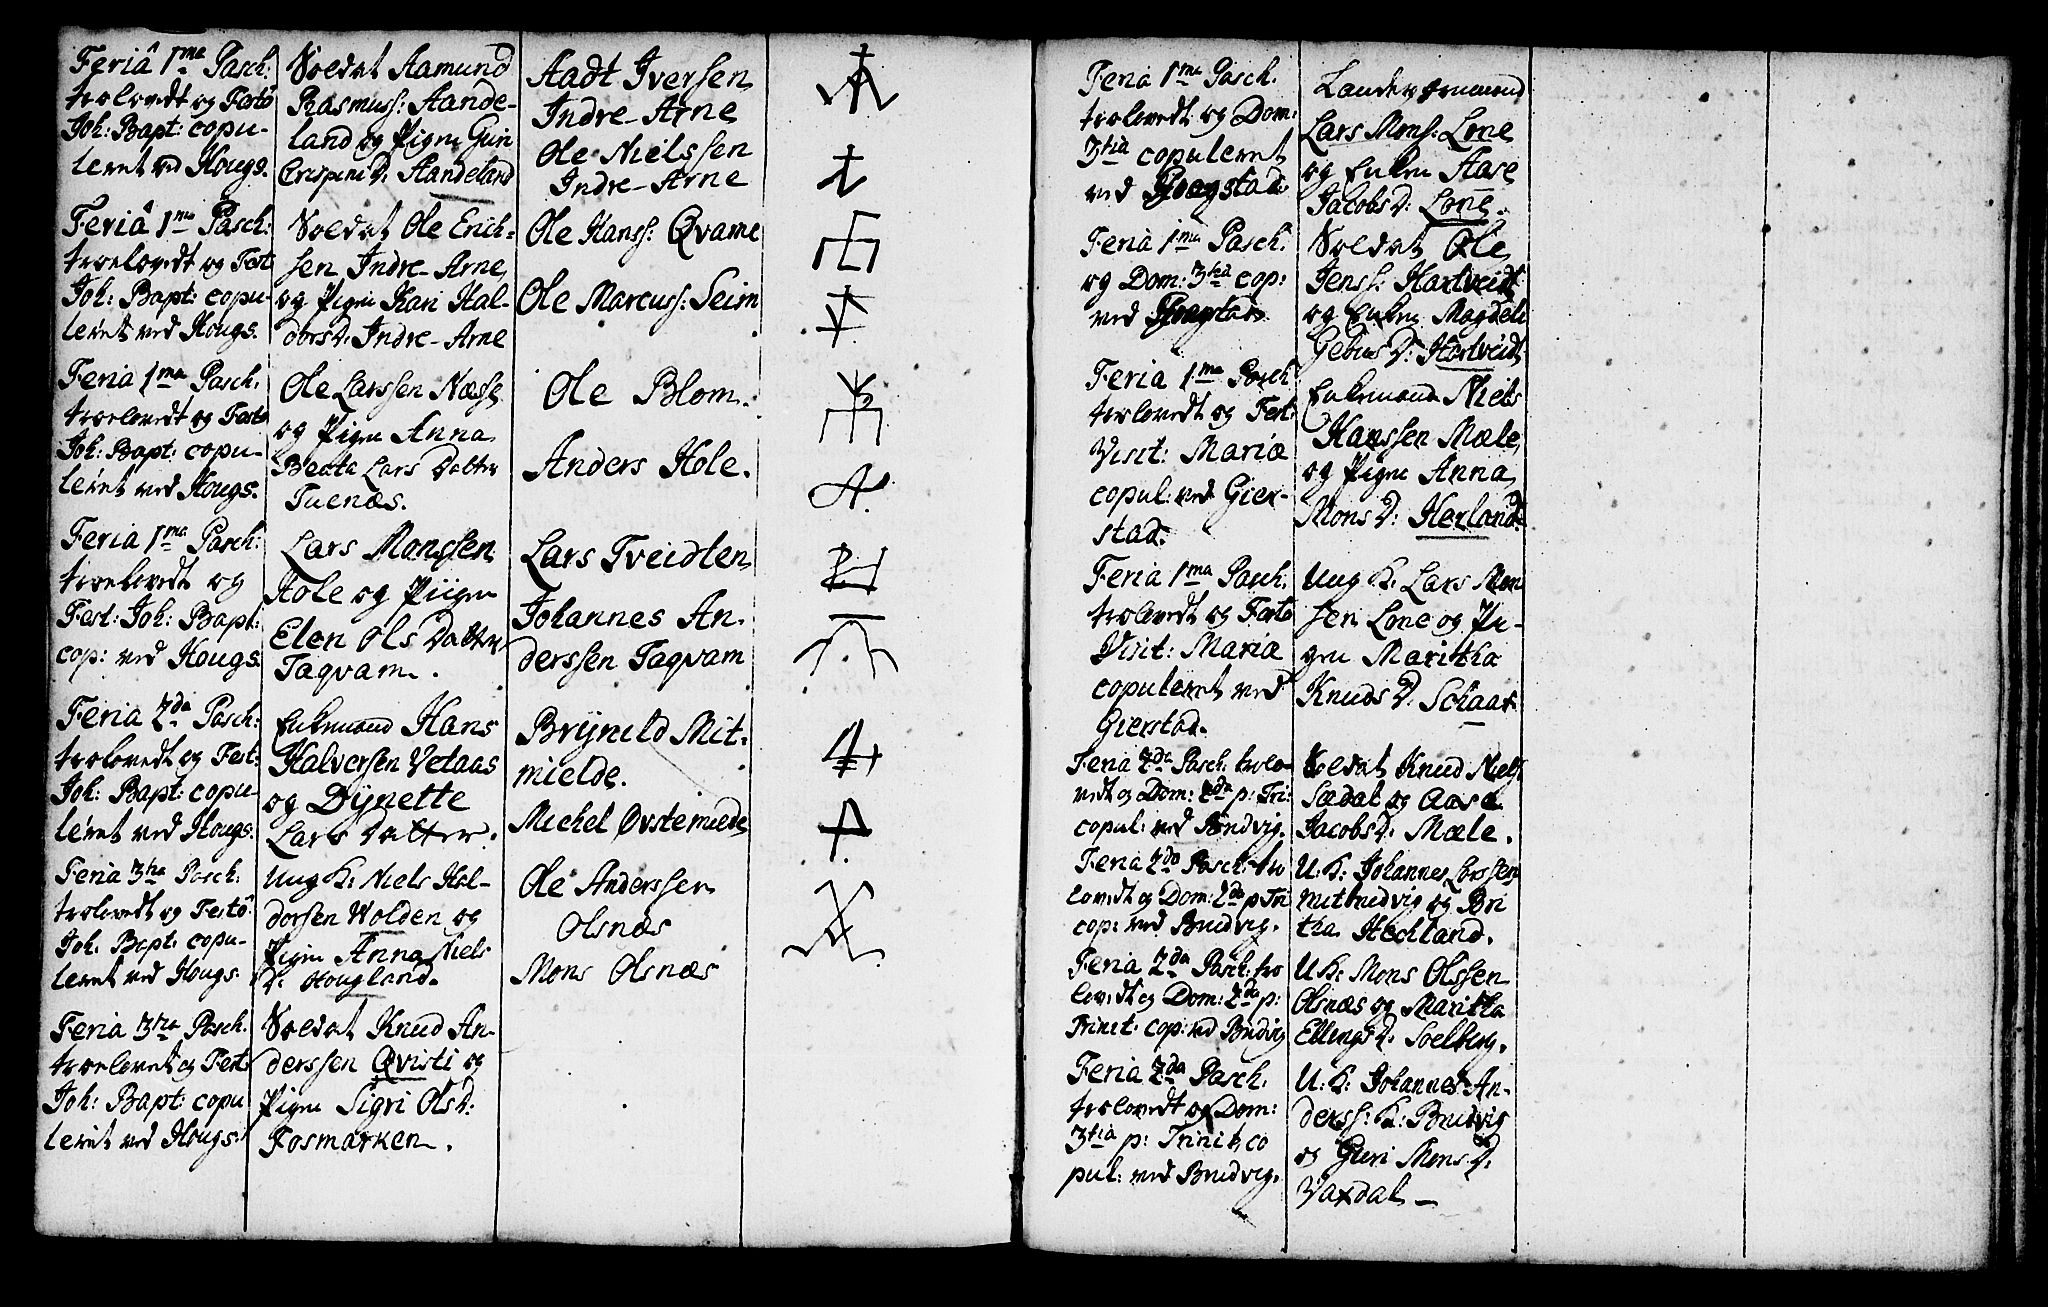 Feriâ 1ma Pasch:
trolovedt og Festô
Joh: Bapt: copu-
leret ved Hougs.
Feriâ 1ma Pasch:
troelovedt og Fest
Joh: Bapt: copu-
leret ved Hougs.
Feria 1ma Pasch.
troelovedt og Festo
Joh: Bapt: copu-
leret ved Hougs.
Feria 1ma Pasch:
troelovedt og
Fest: Joh: Bapt:
cop: ved Hougs.
Feria 2da Pasch:
trolovedt og Fest:
Joh: Bapt: copu-
leret ved Hougs:
Feria 3tia Pasch:
trolovedt og Festô
Joh: Bapt: copu-
leret ved Hougs.
Feria 3tia Pasch.
troelovet og Fest:
Joh: Bapt: copu
leret ved Hougs:
Soldat Aamund
Rasmuss: Aande-
land og Pigen Guri
Crispini D: Aandeland
Soldat Ole Erich-
sen Indre-Arne
og Pigen Kari Hal-
dorsD: Indre-Arne
Ole Larssen Næsse
og Pigen Anna
Beata Lars Datter
Tuenæs.
Lars Monssen
Hole og Piigen
Elen Ols Datter
Taqvam.
Enkemand Hans
Halversen Vetaas
og Dÿnette
Lars Datter.
Ung K: Niels Hal-
dorsen Wolden og
Pigen Anna Niels
D: Hougland.
Soldat Knud An-
derssen Qvisti og
Pigen Sigri OlsD:
Fosmarken.
Aadt Iversen
Indre-Arne
Ole Nielssen
Indre-Arne
Ole Hanss: Qvame
Ole Marcuss: Seim
Ole Blom.
Anders Hole.
Lars Tveidten
Johannes An-
derssen Taqvam
Brÿnild Mit-
mielde.
Michel Øvstemielde
Ole Anderssen
Olsnæs
Mons Olsnæs
Feria 1ma Pasch.
trolovedt og Dom:
3tia copuleret
ved
Feria 1ma Pasch.
og Dom: 3tia cop:
ved
Feria 1ma Pasch
trolovedt og Fest:
Visit: Mariæ
copul: ved Gier-
stad.
Feria 1ma Pasch.
trolovedt og Festo
Visit: Mariæ
copuleret ved
Gierstad.
Feria 2da Pasch. trolo-
vedt og Dom: 2da p: Tri:
copul: ved Brudvig.
Feria 2da Pasch: tro
lovedt og Dom: 2da p Tri
cop: ved Brudvig.
Feria 2da Pasch: tro
lovedt og Dom: 2da p:
Trinit: cop: ved Brudvig
Feria 2da Pasch.
trolovedt og Dom:
3tia p: Trinit, co
pul: ved Brudvig.
Lars Mons: Lone
og Enken Aase
JacobsD: Lone.
Soldat Ole
Jenss: Hartveidt
og Enken Magdeli
Gebus D: Hartveidt
Enkemand Niels
Hanssen Mæle
og Pigen Anna
Mons D: Herland
Ung K: Lars Mon
sen Lone og Pi-
gen Maritha
Knuds D: Schaar
Soldat Knud Niels:
Sædal og Aasa
JacobsD: Mæle.
U: K: Johannes Larssen
Mitbrudvig og Bri
tha Hechland.
U: K: Mons Olssen
Olsnæs og Maritha
EllingsD: Solberg.
U: K: Johannes An-
derss: K: Brudvig
og Guri MonsD:
Vaxdal -